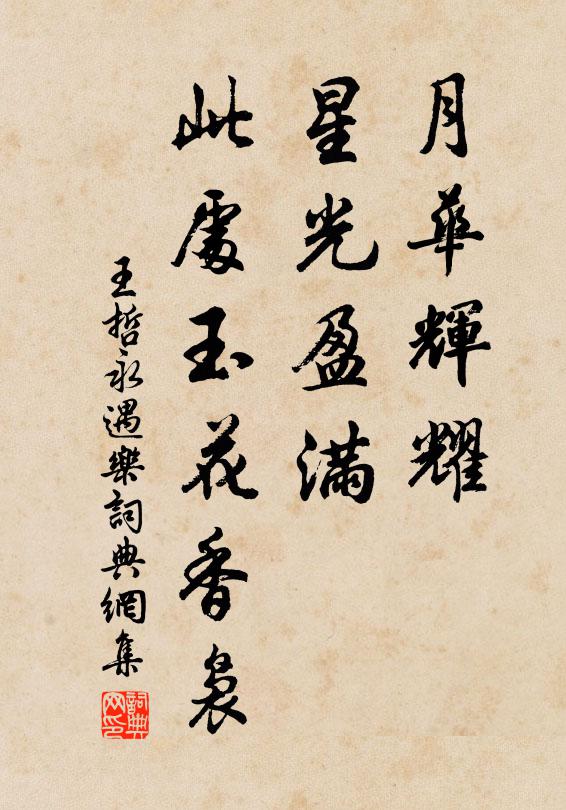 月華輝耀
星光盈滿
此處玉花香裊
王哲永遇樂詞典網集
詞典网印